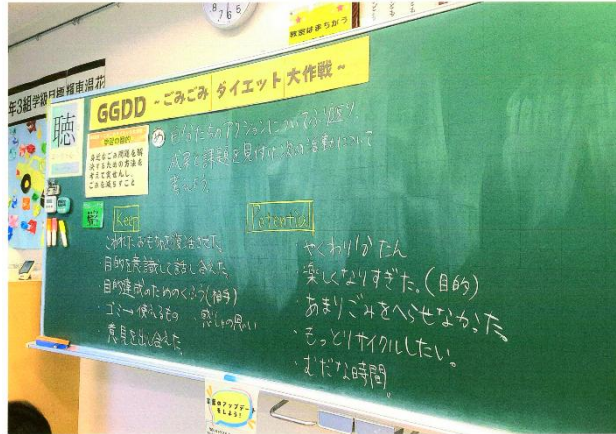 教室はまちがう
年3組学級目標 輝東温花
GGDD ~ごみごみ ダイエット 大作戦~
聴
学習の目的
身近なごみ問題を解
決するための方法を
考えて実せんし、
ごみを減らすこと
め 自分たちのアクションについてふり返り、
成果と課題を見付け、次の活動について
考えよう。
Keep
こわれたおもちゃを復活させた。
目的を意識して話し合えた。
目的達成のためのくふう(相手)
・ゴミ→使えるもの
・意見を出し合えた。
Potential
・やくわりぶたん
・楽しくなりすぎた。(目的)
・あまりごみをへらせなかった。
・もっとリサイクルしたい。
・むだな時間。
言葉のアップデート
をしよう!